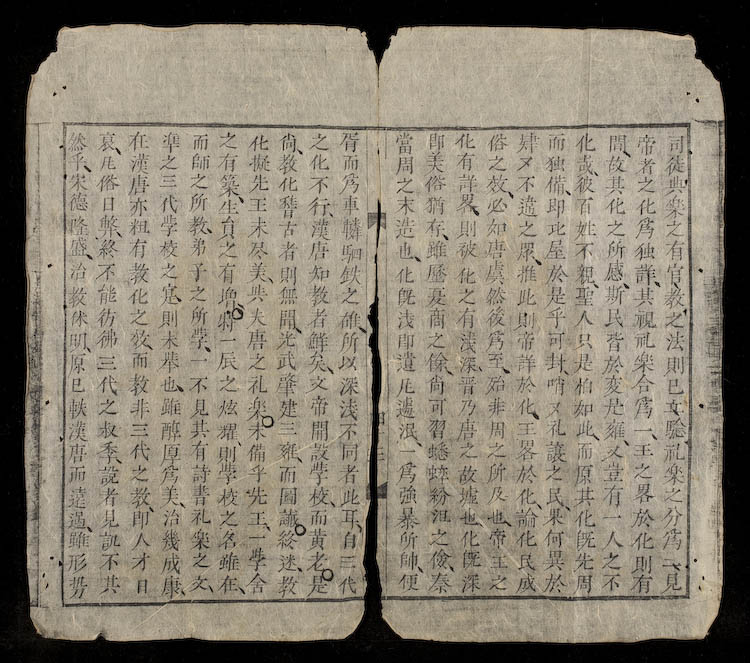 司徒典樂之有官教之法則已文騐礼樂之分爲二見
帝者之化爲独詳其視礼楽合爲一王之畧於化則有
間故其化之所感斯民皆於变是雍又豈有一人之不
化哉彼百姓不親聖人只是怕如此而原其化旣先周
而独備即比屋於是乎可封哨又礼譲之民果何異於
肆又不違之衆推此則帝詳於化王畧於化論化民成
俗之效必如唐虞然後爲至殆非周之所及也帝王之
化有詳畧則被化之有浅深晋乃唐之故墟也化旣深
即美俗猶存雖歷夏商之後尚可習蟋蟀粉沮之儉秦
當周之末造也化旣浅即遺凡遽泯一爲強暴所師便
胥而爲車轔駟鉄之雄所以深浅不同者此耳自三代
之化不行漢唐知教者鮮矣文帝開設學校而黄老是
尚教化稽古者則無聞光武肇建三雍而圖讖終迷教
化擬先王未尽美与夫唐之礼樂未備乎先王一學舍
之有築生員之有增特一辰之炫耀則學校之名雖在
而師之所教弟子之所學一不見其有詩書礼樂之文
準之三代學校之寔則未举也雖醇厚爲美治幾成康
在漢唐亦粗有教化之效而教非三代之教即人才日
衰凡俗日弊終不能彷彿三代之叔季說者見訊不其
然乎宋德隆盛治教休明原已軼漢唐而遠過雖形势